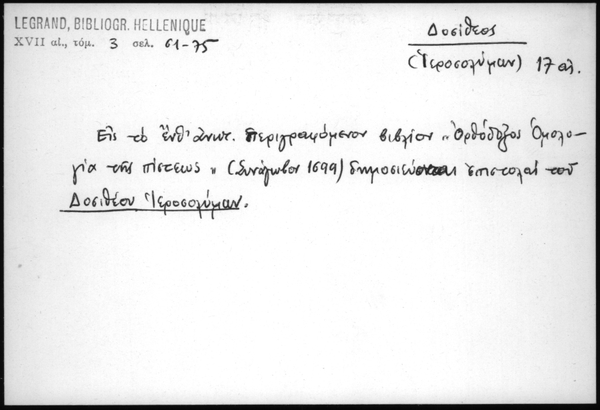 LEGRAND, BIBLIOGR. HELLENIQUE
XVII αἰ., τόμ. 3 σελ. 61-75
Δοσίθεος
(Ἱεροσολύμων) 17 αἰ.
Εἰς τὸ ἔνθ' ἀνωτ. περιγραφόμενον βιβλίον „Ὀρθόδοξος Ὁμολο-
γία τῆς πίστεως„ (Συνάγωβον 1699) δημοσιεύονται ἐπιστολαὶ τοῦ
Δοσιθέου Ἱεροσολύμων.